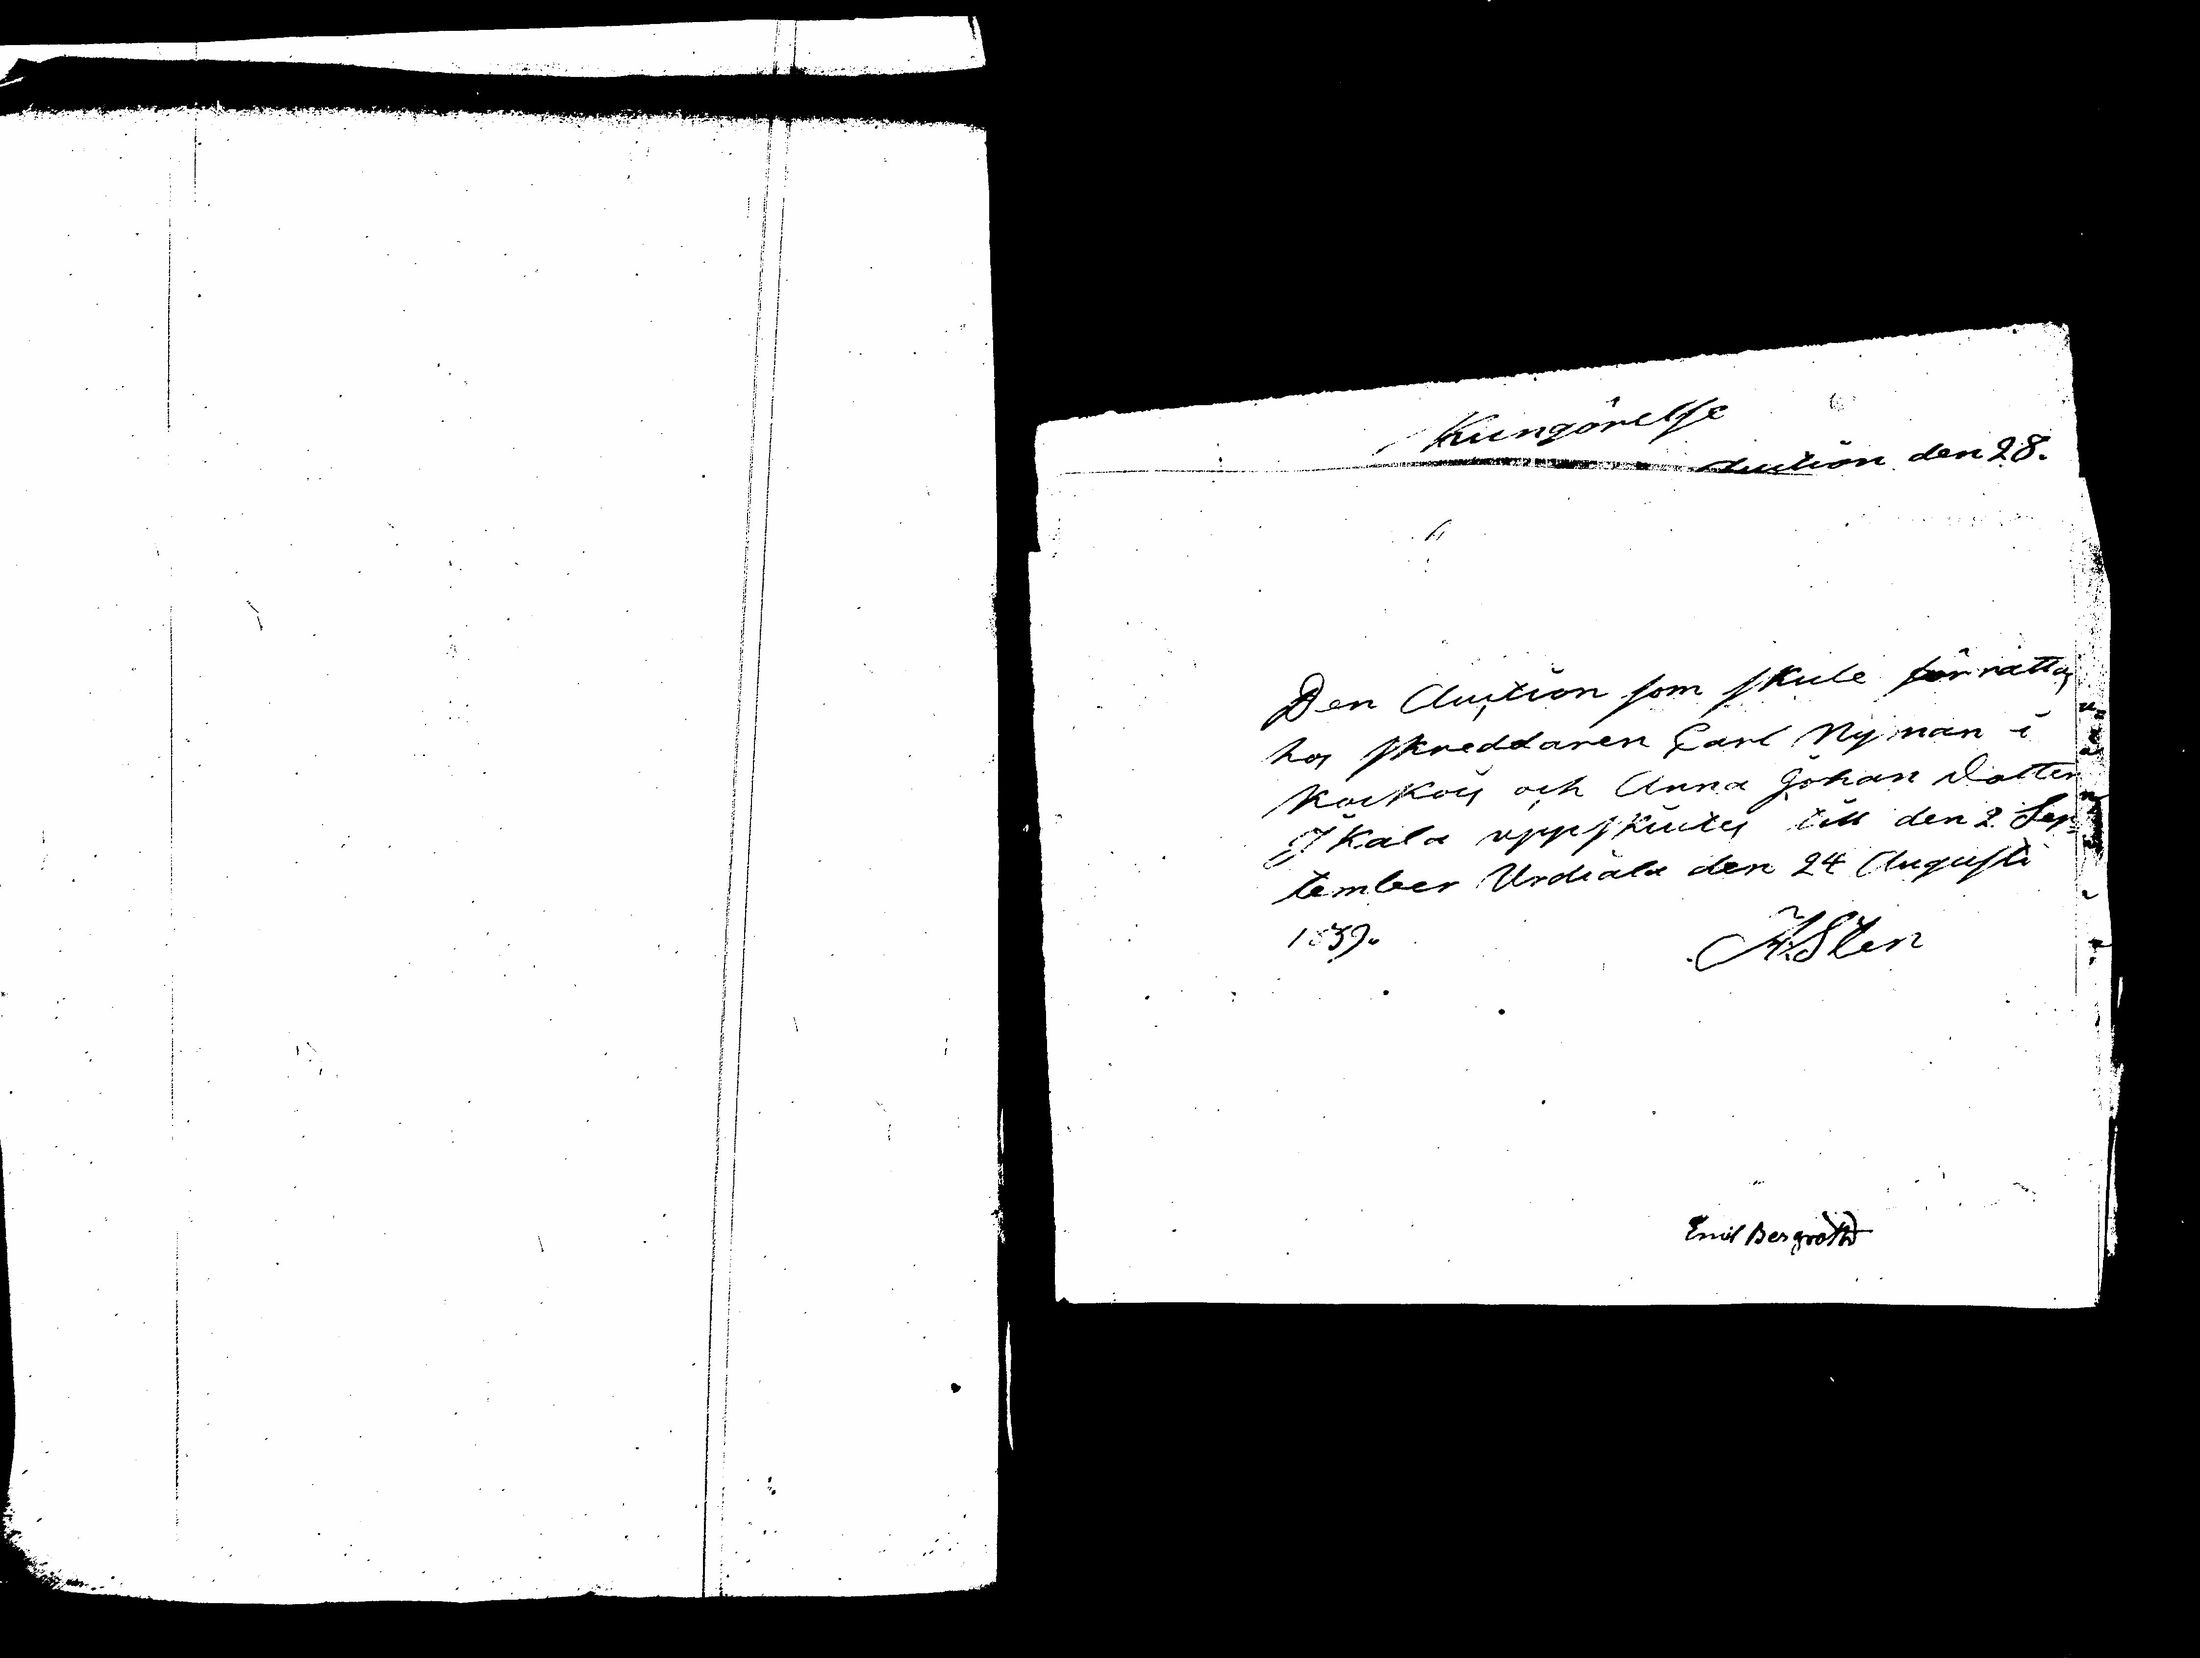 Kungörelse
Auction den 28.
Den Auction som skule förrättas
hos skreddaren Carl Nyman i
Koskois och Anna Johan Dotter
Ikala uppskutes till den 2 Sep
tember Urdiala den 24 Augusti
1839.
Sten
Emil Bergroth